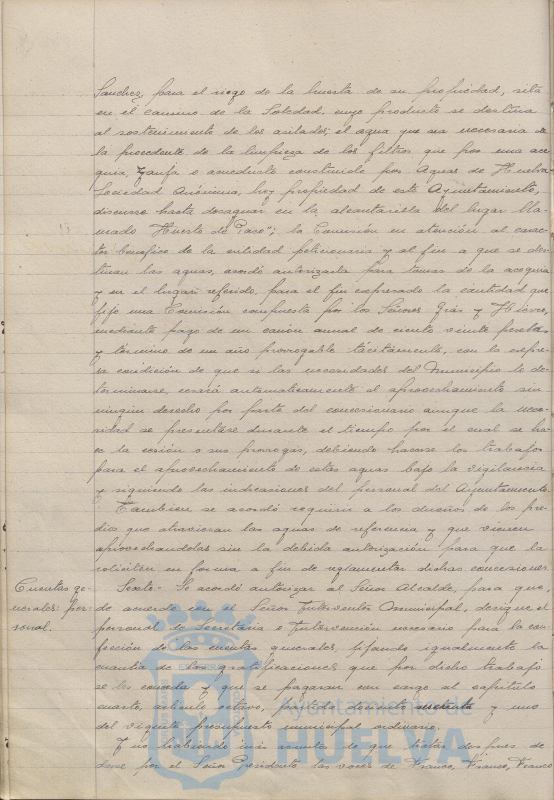 Sanchez, para el riego de la huerta de su propiedad, sita
en el camino de la Soledad, cuyo producto se destina
al sostenimiento de los asilados, el agua que sea necesaria de
la procedente de la limpieza de los filtros que por una ace
quia, zanja o acueducto construido por Aguas de Huelva
Sociedad Anónima, hoy propiedad de este Ayuntamiento,
discurre hasta desaguar en la alcantarilla del lugar lla-
mado "Huerto de Paco"; la Comisión en atención al carac-
ter benefico de la entidad peticionaria y al fin a que se des-
tinan las aguas, acordó autorizarla para tomar de la acequia
y en el lugar referido, para el fin expresado la cantidad que
fije una Comisión compuesta por los Señores y Hierro,
mediante pago de un canon anual de ciento veinte pesetas
y término de un año prorrogable tácitamente, con la expre-
sa condición de que si las necesidades del Municipio lo de-
terminasen, cesará automaticamente el aprovechamiento sin
ningun derecho por parte del concesionario aunque la nece-
sidad se presentase durante el tiempo por el cual se ha-
ce la cesión o sus prorrogas, debiendo hacerse los trabajos
para el aprovechamiento de estas aguas bajo la vigilancia
y siguiendo las indicaciones del personal del Ayuntamiento.
Tambien se acordó requerir a los dueños de los pre-
dios que atraviesan las aguas de referencia y que vienen
aprovechandolas sin la debida autorización para que la
soliciten en forma a fin de reglamentar dichas concesiones.
Cuentas ge-
nerales: per-
sonal.
Sexto.- Se acordó autorizar al Señor Alcalde, para que,
de acuerdo con el Señor Interventor Municipal, designe el
personal de Secretaria e Intervención necesario para la con-
fección de las cuentas generales, fijando igualmente la
cuantía de las gratificaciones que por dicho trabajo
se les conceda y que se pagaran con cargo al capítulo
cuarto, artículo octavo, partida doscientos y uno
del vigente presupuesto municipal ordinario.
Y no habiendo mas asuntos de que tratar, despues de
darse por el Señor Presidente las voces de Franco, Franco, Franco
Ayuntamiento de
HUELVA